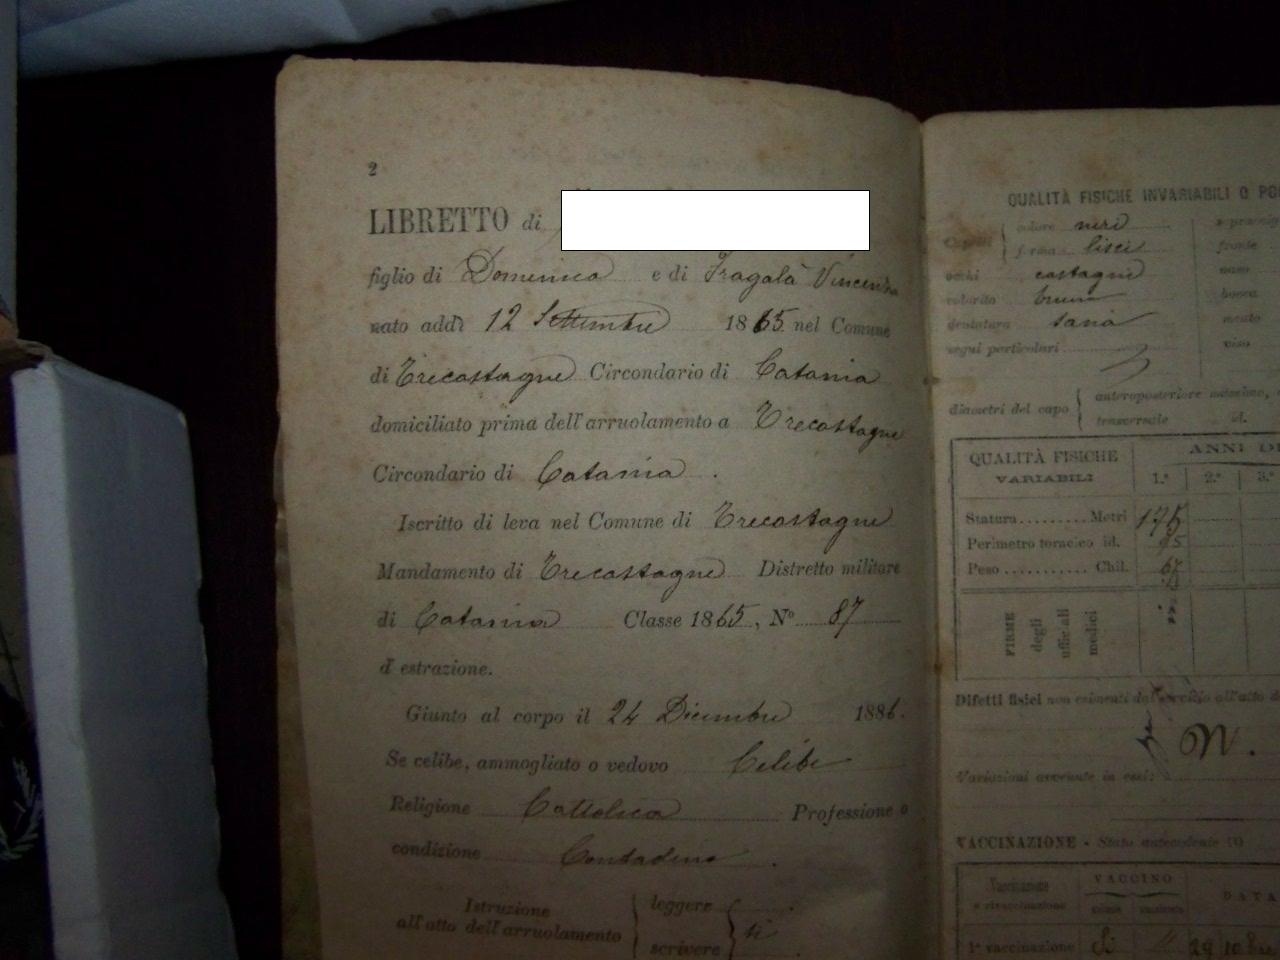 2
LIBRETTO di
figlio di Domenico e di Fragalà Vincenza
nato addì 12 Settembre 1865 nel Comune
di Trecastagne Circondario di Catania
domiciliato prima dell'arruolamento a Trecastagne
Circondario di Catania .
Iscritto di leva nel Comune di Trecastagne
Mandamento di Trecastagne Distretto militare
di Catania Classe 1865, N° 87
d'estrazione.
Giunto al corpo il 24 Dicembre 1886.
Se celibe, ammogliato o vedovo Celibe
Religione Cattolica Professione o
condizione Contadino .
Istruzione
all'atto dell'arruolamento
leggere
scrivere
si
QUALITÀ FISICHE INVARIABILI O PO
Capelli
colore neri
forma lisci
occhi castagni
colorito bruno
dentatura sana
segni particolari
sopraccigl
fronte
naso
bocca
mento
viso
diametri del capo
anteroposteriore massimo,
trasversale id.
QUALITÀ FISICHE
VARIABILI
ANNI DI
1.° 2.° 3.°
Statura ........ Metri 175
Perimetro toracico id. 95
Peso ........... Chil. 67
FIRME
degli
ufficiali
medici
Difetti fisici non esimenti dal servizio all'atto d
N.
Variazioni avvenute in essi:
VACCINAZIONE - Stato antecedente (1)
Vaccinazione
o rivaccinazione
VACCINO
DATA
1ª vaccinazione Si 29 10